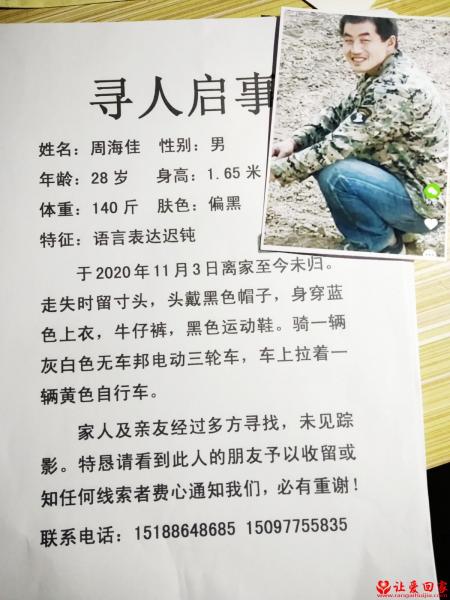 寻人启事
姓名：周海佳 性别：男
年龄：28岁 身高：1.65米
体重：140斤 肤色：偏黑
特征：语言表达迟钝
于2020年11月3日离家至今未归。
走失时留寸头，头戴黑色帽子，身穿蓝
色上衣，牛仔裤，黑色运动鞋。骑一辆
灰白色无车邦电动三轮车，车上拉着一
辆黄色自行车。
家人及亲友经过多方寻找，未见踪
影。特恳请看到此人的朋友予以收留或
知任何线索者费心通知我们，必有重谢！
联系电话：15188648685 15097755835
让爱回家
www.rangaihuijia.com